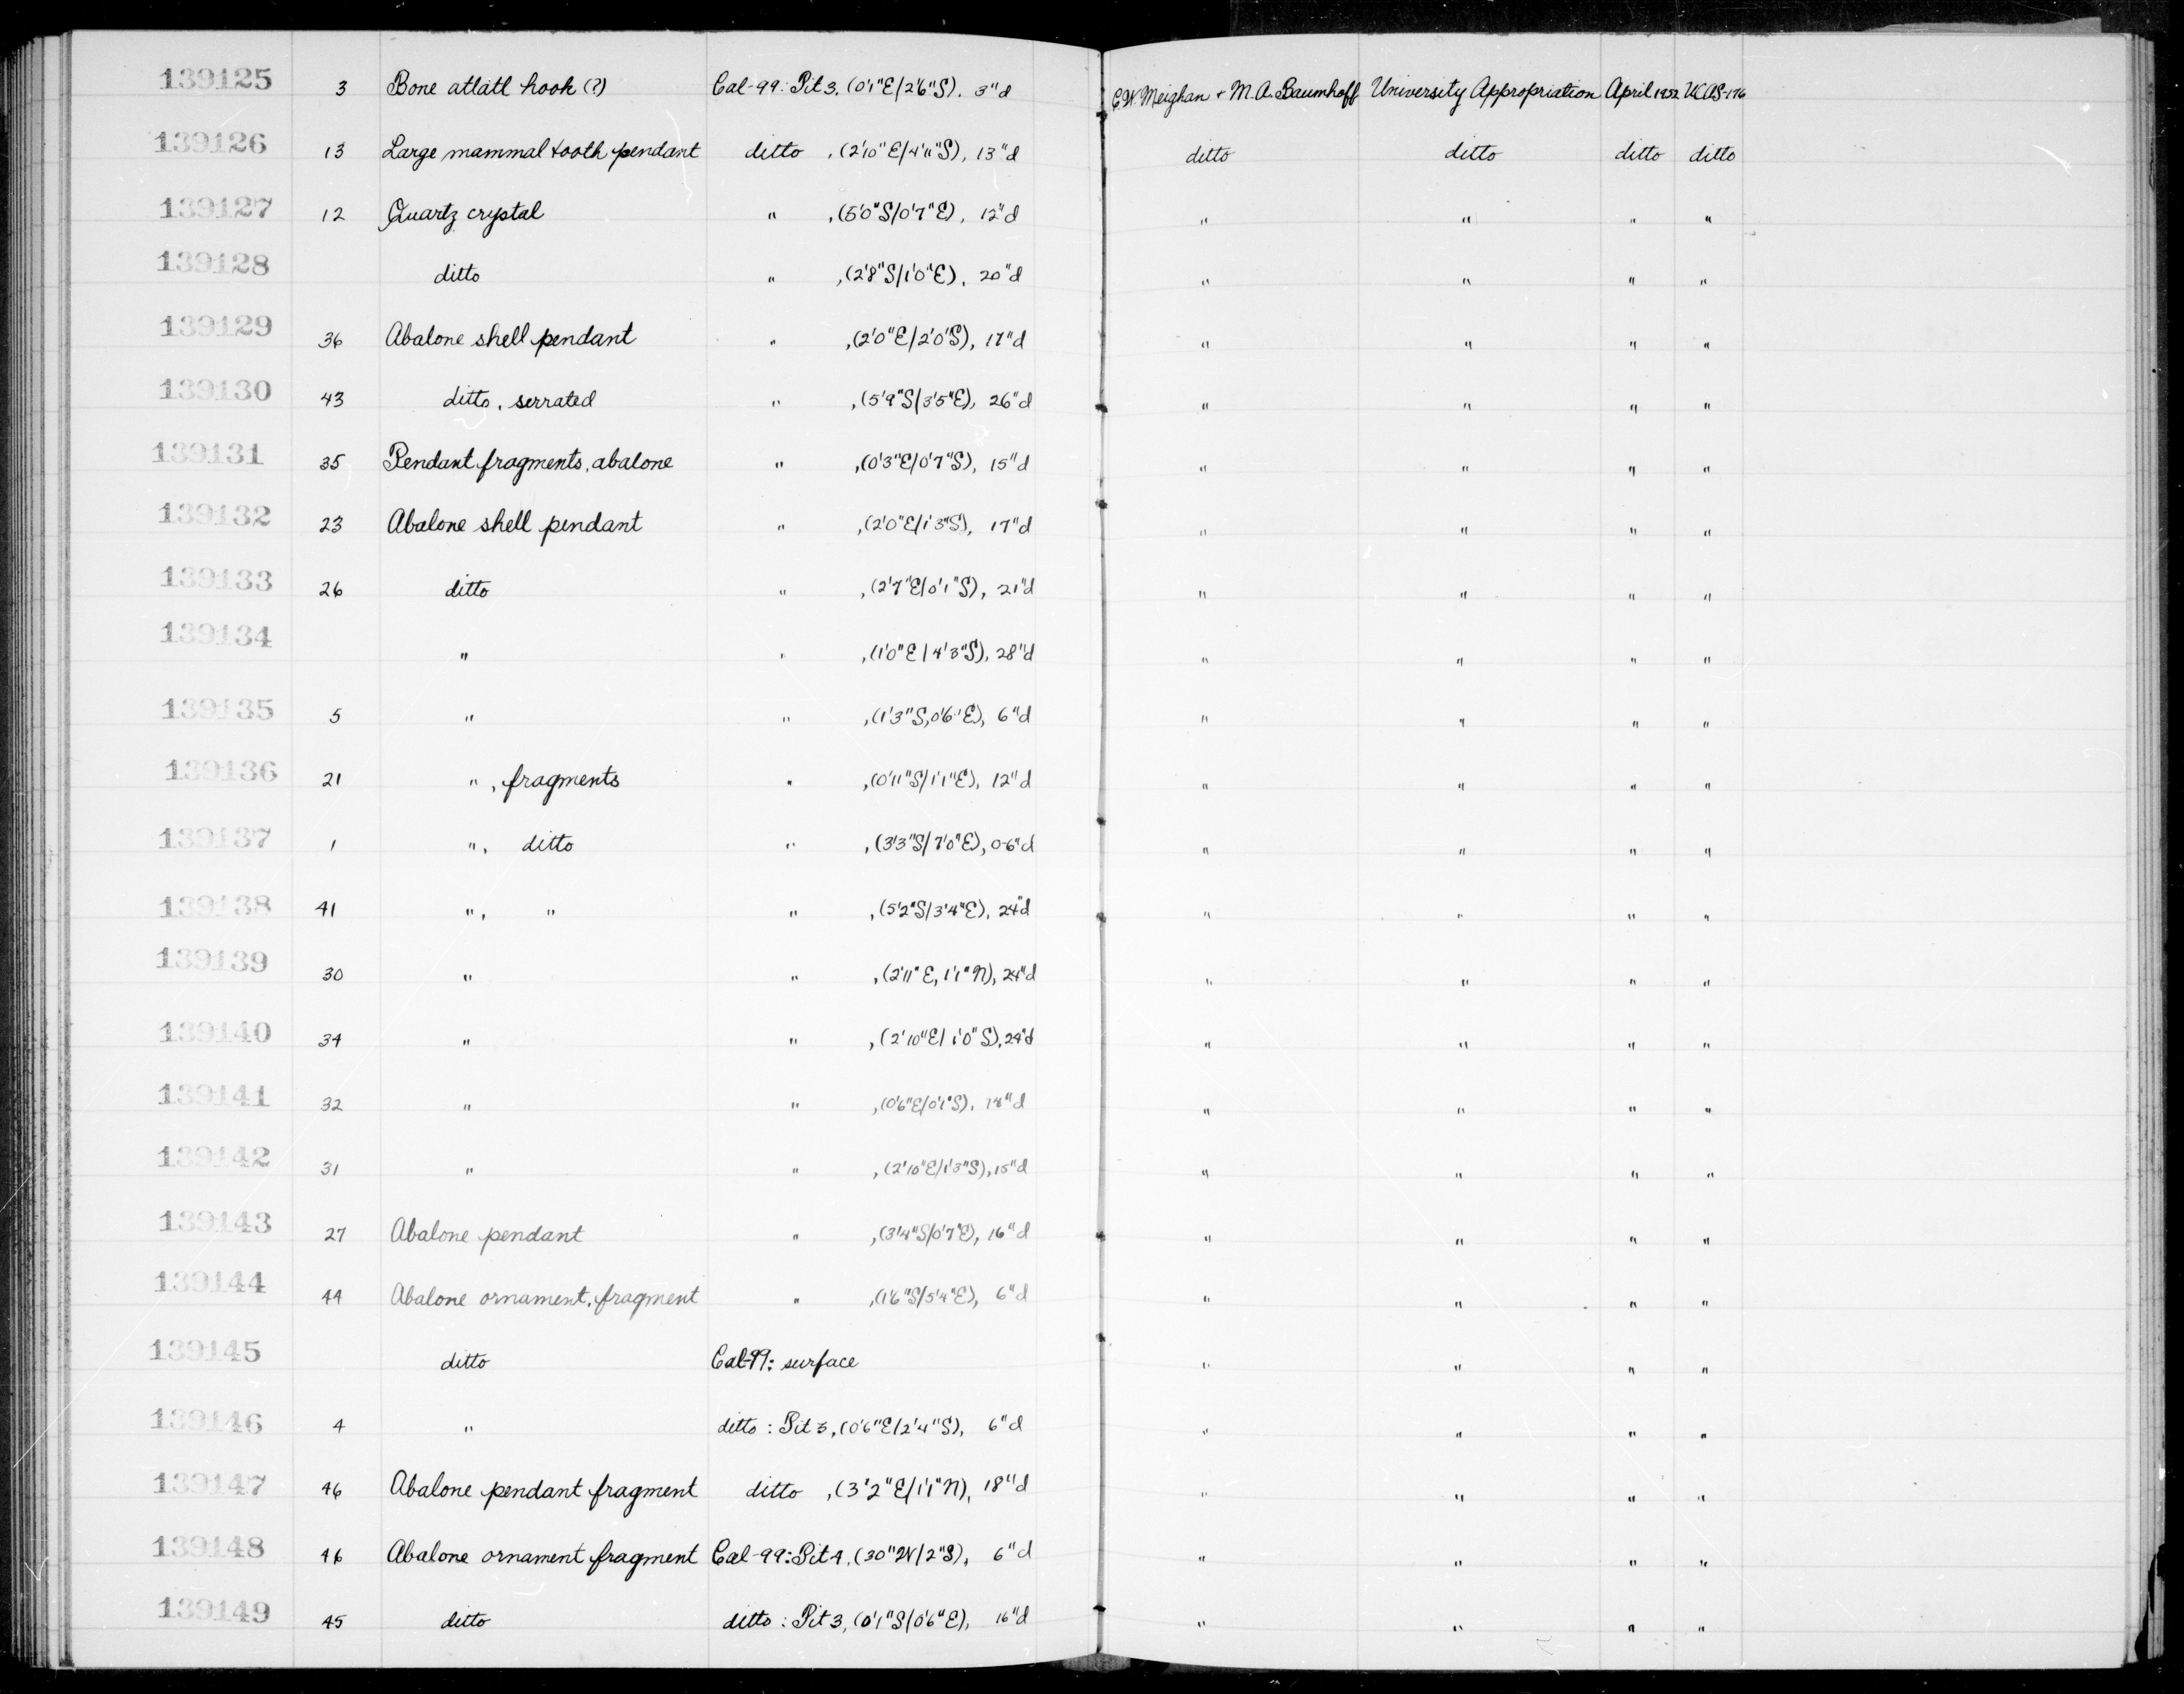 139125 3 Bone atlatl hook (?) Cal-99: Pit 3, (0'1"E/2'6"S), 3"d C.W. Meighan + M.A. Baumhoff University Appropriation April 1952 UCAS-176
139126 13 Large mammal tooth pendant ditto , (2'10"E/4'11"S), 13"d ditto ditto ditto ditto
139127 12 Quartz crystal " , (5'0"S/0'7"E), 12"d " " " "
139128 ditto " , (2'8"S/1'0"E), 20"d " " " "
139129 36 Abalone shell pendant " , (2'0"E/2'0"S), 17"d " " " "
139130 43 ditto, serrated " , (5'9"S/3'5"E), 26"d " " " "
139131 35 Pendant fragments, abalone " , (0'3"E/0'7"S), 15"d " " " "
139132 23 Abalone shell pendant " , (2'0"E/1'3"S), 17"d " " " "
139133 26 ditto " , (2'7"E/0'1"S), 21"d " " " "
139134 " " , (1'0"E/4'3"S), 28"d " " " "
139135 5 " " , (1'3"S,0'6"E), 6"d " " " "
139136 21 " , fragments " , (0'11"S/1'1"E), 12"d " " " "
139137 1 " , ditto " , (3'3"S/7'0"E), 0-6"d " " " "
139138 41 " , " " , (5'2"S/3'4"E), 24"d " " " "
139139 30 " " , (2'11"E, 1'1"N), 24"d " " " "
139140 34 " " , (2'10"E/1'0"S), 24"d " " " "
139141 32 " " , (0'6"E/0'1"S), 18"d " " " "
139142 31 " " , (2'10"E/1'3"S), 15"d " " " "
139143 27 Abalone pendant " , (3'4"S/0'7"E), 16"d " " " "
139144 44 Abalone ornament, fragment " , (1'6"S/5'4"E), 6"d " " " "
139145 ditto Cal-99: surface " " " "
139146 4 " ditto : Pit 3, (0'6"E/2'4"S), 6"d " " " "
139147 46 Abalone pendant fragment ditto , (3'2"E/1'1"N), 18"d " " " "
139148 46 Abalone ornament fragment Cal-99: Pit 4, (30"W/2"S), 6"d " " " "
139149 45 ditto ditto : Pit 3, (0'1"S/0'6"E), 16"d " " " "